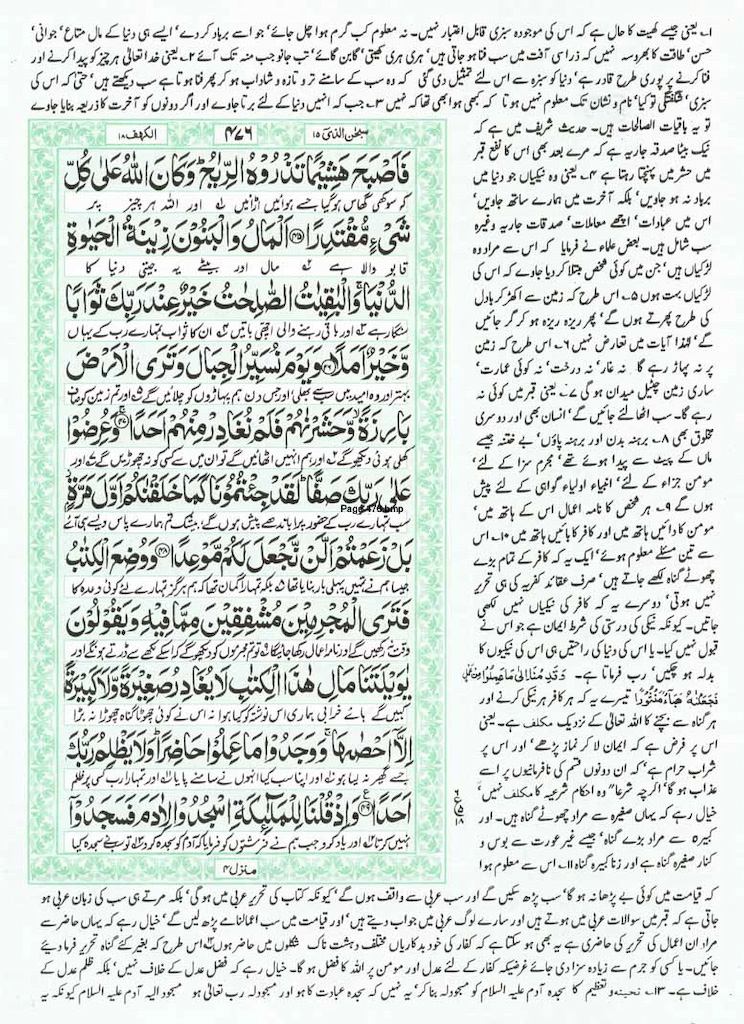 ۱؎ یعنی جیسے کھیت کا حال ہے کہ اس کی موجودہ سبزی قابل اعتبار نہیں۔ نہ معلوم کب گرم ہوا چل جائے' جو اسے برباد کر دے' ایسے ہی دنیا کے مال متاع' جوانی'
حسن' طاقت کا بھروسہ نہیں کہ ذرا سی آفت میں سب فنا ہو جاتی ہیں' ہری ہری کھیتی' گابن گائے' تب جانو جب منہ تک آئے ۲؎ یعنی خدا تعالیٰ ہر چیز کو پیدا کرنے اور
فنا کرنے پر پوری طرح قادر ہے' دنیا کو سبزہ سے اس لئے تمثیل دی گئی کہ وہ سب کے سامنے تر و تازہ و شاداب ہو کر پھر فنا ہوتا ہے سب دیکھتے ہیں' حتیٰ کہ اس کی
سبزی' شگفتگی تو کیا' نام و نشان تک معلوم نہیں ہوتا کہ کبھی ہوا بھی تھا کہ نہیں ۳؎ جب کہ انہیں دنیا کے لئے برتا جاوے اور اگر دونوں کو آخرت کا ذریعہ بنایا جاوے
تو یہ باقیات الصالحات ہیں۔ حدیث شریف میں ہے کہ
نیک بیٹا صدقہ جاریہ ہے کہ مرے بعد بھی اس کا نفع قبر
میں حشر میں پہنچتا رہتا ہے ۴؎ یعنی وہ نیکیاں جو دنیا میں
برباد نہ ہو جاویں' بلکہ آخرت میں ہمارے ساتھ جاویں'
اس میں عبادات' اچھے معاملات' صدقات جاریہ وغیرہ
سب شامل ہیں۔ بعض علماء نے فرمایا کہ اس سے مراد وہ
لڑکیاں ہیں' جن میں کوئی شخص مبتلا کر دیا جاوے کہ اس کی
لڑکیاں بہت ہوں ۵؎ اس طرح کہ زمین سے اکھڑ کر بادل
کی طرح پھرتے ہوں گے' پھر ریزہ ریزہ ہو کر گر جائیں
گے' لہٰذا آیات میں تعارض نہیں ۶؎ اس طرح کہ زمین
پر نہ پہاڑ رہے گا نہ غار' نہ درخت' نہ کوئی عمارت'
ساری زمین چٹیل میدان ہو گی ۷؎ یعنی قبر میں کوئی نہ
رہے گا۔ سب اٹھا لئے جائیں گے' انسان بھی اور دوسری
مخلوق بھی ۸؎ برہنہ بدن اور برہنہ پاؤں' بے ختنہ جیسے
ماں کے پیٹ سے پیدا ہوئے تھے' مجرم سزا کے لئے'
مومن جزاء کے لئے' انبیاء اولیاء گواہی کے لئے پیش
ہوں گے ۹؎ ہر شخص کا نامہ اعمال اس کے ہاتھ میں'
مومن کا دائیں ہاتھ میں اور کافر کا بائیں ہاتھ میں ۱۰؎ اس
سے تین مسئلے معلوم ہوئے' ایک یہ کہ کافر کے تمام بڑے
چھوٹے گناہ لکھے جاتے ہیں' صرف عقائد کفریہ کی ہی تحریر
نہیں ہوتی' دوسرے یہ کہ کافر کی نیکیاں نہیں لکھی
جاتیں۔ کیونکہ نیکی کی درستی کی شرط ایمان ہے جو اس نے
قبول نہیں کیا۔ یا اس کی دنیا کی راحتیں ہی اس کی نیکیوں کا
بدلہ ہو چکیں' رب فرماتا ہے۔ وَقَدِمْنَا إِلَىٰ مَا عَمِلُوا مِنْ عَمَلٍ
فَجَعَلْنَاهُ هَبَاءً مَنْثُورًا تیسرے یہ کہ ہر کافر ہر نیکی کرنے اور
ہر گناہ سے بچنے کا اللہ تعالیٰ کے نزدیک مکلف ہے۔ یعنی
اس پر فرض ہے کہ ایمان لا کر نماز پڑھے' اور اس پر
شراب حرام ہے' کہ ان دونوں قسم کی نافرمانیوں پر اسے
عذاب ہو گا' اگرچہ شرعا" وہ احکام شرعیہ کا مکلف نہیں'
خیال رہے کہ یہاں صغیرہ سے مراد چھوٹے گناہ' اور
کبیرہ سے مراد بڑے گناہ' جیسے غیر عورت سے بوس و
کنار صغیرہ گناہ ہے اور زنا کبیرہ گناہ ۱۱؎ اس سے معلوم ہوا
سبحٰن الذی ۱۵
۴۷۶
الکہف ۱۸
فَاَصْبَحَ هَشِیْمًا تَذْرُوْهُ الرِّیٰحُؕ وَ كَانَ اللّٰهُ عَلٰى كُلِّ
کہ سوکھی گھاس ہو گیا جسے ہوائیں اڑائیں اور اللہ ہر چیز پر
شَیْءٍ مُّقْتَدِرًا ﴿۴۵﴾ اَلْمَالُ وَ الْبَنُوْنَ زِیْنَةُ الْحَیٰوةِ
قابو والا ہے مال اور بیٹے یہ جیتی دنیا کا
الدُّنْیَاۚ وَ الْبٰقِیٰتُ الصّٰلِحٰتُ خَیْرٌ عِنْدَ رَبِّكَ ثَوَابًا
سنگار ہے اور باقی رہنے والی اچھی باتیں ان کا ثواب تمہارے رب کے یہاں
وَّ خَیْرٌ اَمَلًا ﴿۴۶﴾ وَ یَوْمَ نُسَیِّرُ الْجِبَالَ وَ تَرَى الْاَرْضَ
بہتر اور وہ امید میں سب سے بھلی اور جس دن ہم پہاڑوں کو چلائیں گے اور تم زمین کو صاف
بَارِزَةًۙ وَّ حَشَرْنٰهُمْ فَلَمْ نُغَادِرْ مِنْهُمْ اَحَدًا ﴿۴۷﴾ وَ عُرِضُوْا
کھلی ہوئی دیکھو گے اور ہم انہیں اٹھائیں گے تو ان میں سے کسی کو نہ چھوڑیں گے اور
عَلٰى رَبِّكَ صَفًّاؕ لَقَدْ جِئْتُمُوْنَا كَمَا خَلَقْنٰكُمْ اَوَّلَ مَرَّةٍۭ
Page 476.bmp
سب تمہارے رب کے حضور پرا باندھے پیش ہوں گے بیشک تم ہمارے پاس ویسے ہی آئے
بَلْ زَعَمْتُمْ اَلَّنْ نَّجْعَلَ لَكُمْ مَّوْعِدًا ﴿۴۸﴾ وَ وُضِعَ الْكِتٰبُ
جیسا ہم نے تمہیں پہلی بار بنایا تھا بلکہ تمہارا گمان تھا کہ ہم ہرگز تمہارے لئے کوئی وعدہ کا
فَتَرَى الْمُجْرِمِیْنَ مُشْفِقِیْنَ مِمَّا فِیْهِ وَ یَقُوْلُوْنَ
وقت نہ رکھیں گے اور نامہ اعمال رکھا جائیگا تو تم مجرموں کو دیکھو گے کہ اسکے لکھے سے ڈرتے ہونگے اور
یٰوَیْلَتَنَا مَالِ هٰذَا الْكِتٰبِ لَا یُغَادِرُ صَغِیْرَةً وَّ لَا كَبِیْرَةً
کہیں گے ہائے خرابی ہماری اس نوشتہ کو کیا ہوا نہ اس نے کوئی چھوٹا گناہ چھوڑا نہ بڑا
اِلَّاۤ اَحْصٰىهَاۚ وَ وَجَدُوْا مَا عَمِلُوْا حَاضِرًاؕ وَ لَا یَظْلِمُ رَبُّكَ
جسے گھیر نہ لیا ہو اور اپنا سب کیا انہوں نے سامنے پایا اور تمہارا رب کسی پر ظلم
اَحَدًا ﴿۴۹﴾ وَ اِذْ قُلْنَا لِلْمَلٰٓىٕكَةِ اسْجُدُوْا لِاٰدَمَ فَسَجَدُوْۤا
نہیں کرتا اور یاد کرو جب ہم نے فرشتوں کو فرمایا کہ آدم کو سجدہ کرو تو سب نے سجدہ کیا
منزل ۴
کہ قیامت میں کوئی بے پڑھا نہ ہو گا' سب پڑھ سکیں گے اور سب عربی سے واقف ہوں گے' کیونکہ کتاب کی تحریر عربی میں ہو گی' بلکہ مرتے ہی سب کی زبان عربی ہو
جاتی ہے کہ قبر میں سوالات عربی میں ہوتے ہیں اور سارے لوگ عربی میں جواب دیتے ہیں' اور قیامت میں سب اعمالنامے پڑھ لیں گے' خیال رہے کہ یہاں حاضر سے
مراد ان اعمال کی تحریر کی حاضری ہے یہ بھی ہو سکتا ہے کہ کفار کی خود بدکاریاں مختلف دہشت ناک شکلوں میں حاضر ہوں اس طرح کہ بغیر کئے گناہ تحریر فرما دیئے
جائیں۔ یا کسی کو جرم سے زیادہ سزا دی جائے غرضیکہ کفار کے لئے عدل اور مومن پر اللہ کا فضل ہو گا۔ خیال رہے کہ فضل عدل کے خلاف نہیں' بلکہ ظلم عدل کے
خلاف ہے۔ ۱۳؎ تحیتہ و تعظیم کا سجدہ آدم علیہ السلام کو مسجود لہ بنا کر' یہ نہیں کہ سجدہ عبادت کا ہو اور مسجود لہ رب تعالیٰ ہو مسجود الیہ آدم علیہ السلام کیونکہ یہ